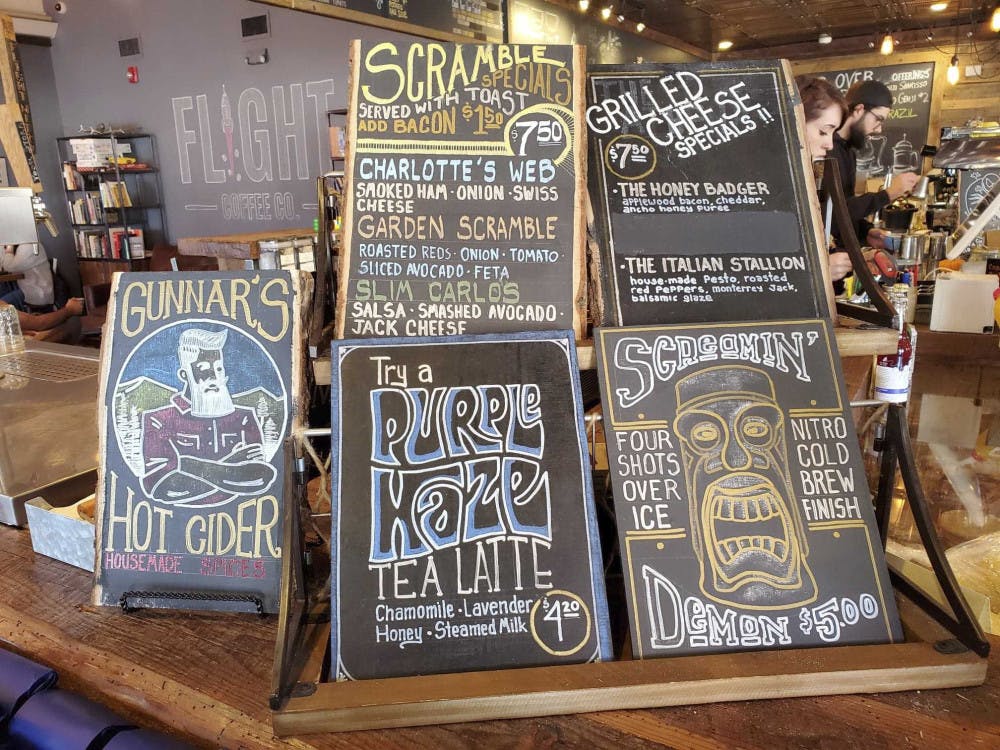 FLIGHT
COFFEE CO.
SCRAMBLE
SPECIALS
SERVED WITH TOAST
ADD BACON $1.50
$7.50
CHARLOTTE'S WEB
SMOKED HAM · ONION · SWISS
CHEESE
GARDEN SCRAMBLE
ROASTED REDS · ONION · TOMATO ·
SLICED AVOCADO · FETA
SLIM CARLO'S
SALSA · SMASHED AVOCADO ·
JACK CHEESE
GRILLED
CHEESE
SPECIALS!!
$7.50
· THE HONEY BADGER
applewood bacon, cheddar,
ancho honey puree
· THE ITALIAN STALLION
house-made Pesto, roasted
red peppers, monterrey Jack,
balsamic glaze
OVER
OFFERINGS
BRAZIL
GUNNAR'S
HOT CIDER
HOUSEMADE
Try a
PURPLE
HAZE
TEA LATTE
Chamomile · Lavender
Honey · Steamed Milk
$4.20
SCREAMIN'
FOUR
SHOTS
OVER
ICE
NITRO
COLD
BREW
FINISH
DEMON $5.00